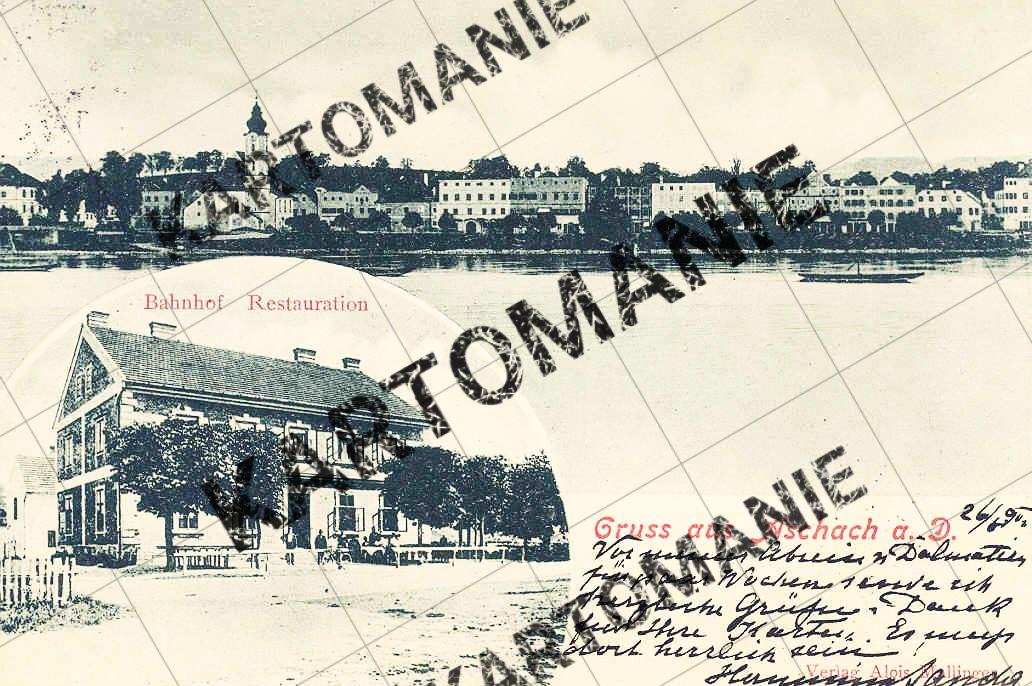 KARTOMANIE
KARTOMANIE
KARTOMANIE
Bahnhof Restauration
Gruss aus Aschach a. D.
26/6
Vor meiner Abreise n Dalmatien
Wochen sende ich
herzliche Grüße u. Dank
für Ihre Karten. Es muß
dort herrlich sein!
Verlag Alois Mallinger
Hermann